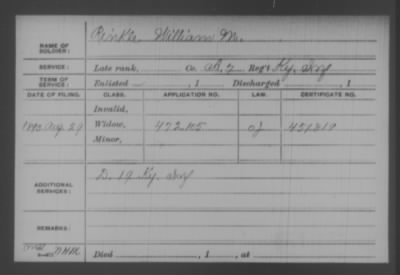 NAME OF SOLDIER: Rinkle William M.
SERVICE: Late rank, Co. Reg't Ky. Inf
TERM OF SERVICE: Enlisted , 1 Discharged , 1
DATE OF FILING. CLASS. APPLICATION NO. LAW. CERTIFICATE NO.
Invalid,
Aug. 29 Widow, 472.105
Minor,
ADDITIONAL SERVICES: D. 19 Ky. Inf
REMARKS:
Died , 1 , at